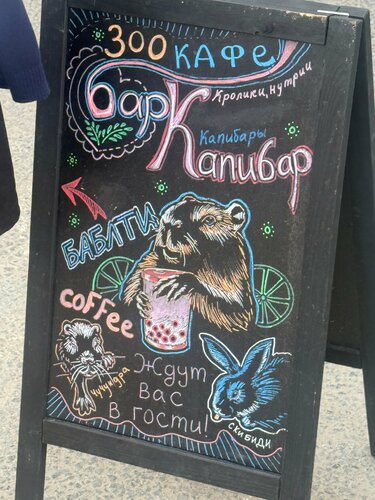 ЗОО КАФЕ
Кролики, нутрии
бар
Капибары
Капибар
БАБЛТИ
COFFEE
Чучундра
Ждут
Вас
в гости!
СКИБИДИ